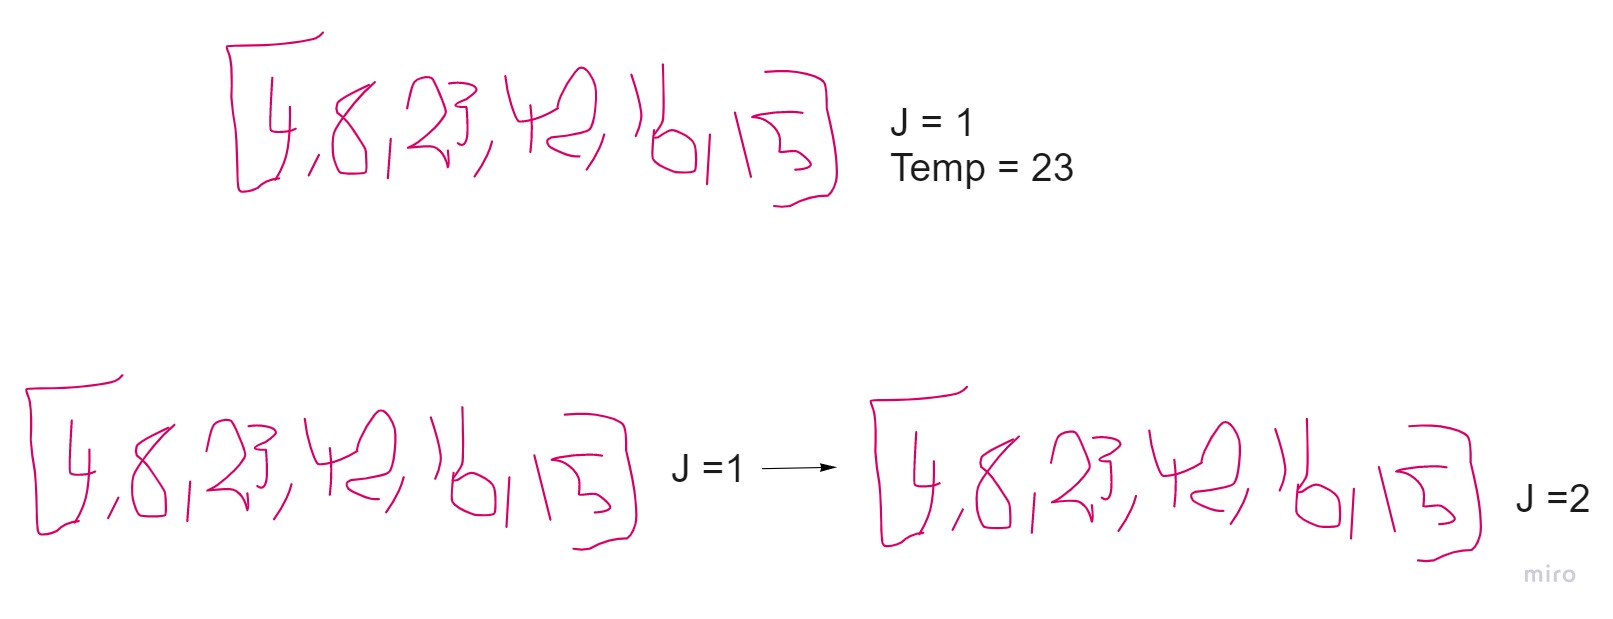 [4,8,23,42,16,15]
J = 1
Temp = 23
[4,8,23,42,16,15]
J =1
[4,8,23,42,16,15]
J =2
miro